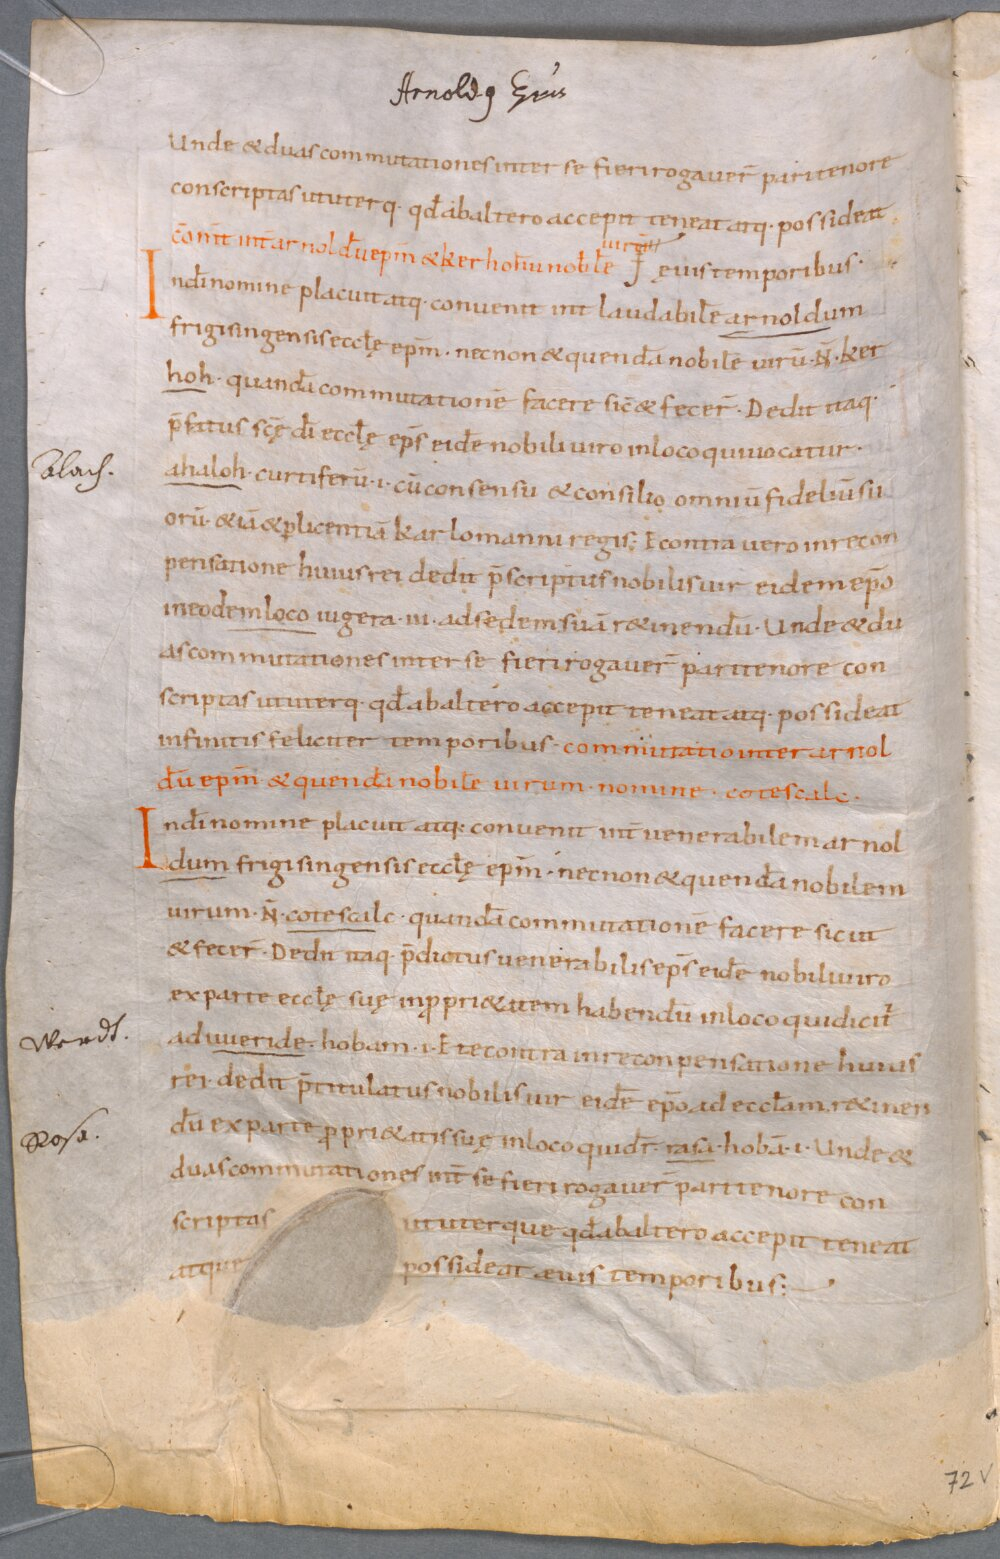 Arnoldꝯ Epūs
Unde & duas commutationes inter se fieri rogaver̄ pari tenore
conscriptas ut uterq. qđ ab altero accepit teneat atq. possideat
c̄om̄t int̄ arnoldū ep̄m & kerhohū nobile ęuis temporibus.
virū
In dī nomine placuit atq. convenit int̄ laudabilē arnoldum
frigisingensis eccl̄ę ep̄m. nec non & quendā nobilē virū. N̄. ker
hoh. quandā commutationē facere sic̄ & fecer̄. Dedit itaq.
Alach.
p̄fatus sc̄ę dī eccl̄ę ep̄s eidē nobili viro in loco qui vocatur.
ahaloh. curtiferū. i. cū consensu & consilio omniū fideliū su
orū. & iā & p licentiā karlomanni regis; Econtra vero in recon
pensatione huius rei dedit p̄scriptus nobilis vir eidem ep̄o
in eodem loco iugera. iii. ad sedem suā r&inendū. Unde & du
as commutationes inter se fieri rogaver̄ pari tenore con
scriptas ut uterq. qđ ab altero accepit teneat atq. possideat
infinitis feliciter temporibus. commutatio inter arnol
dū ep̄m & quendā nobilē virum. nomine. cotescalc.
In dī nomine placuit atq. convenit int̄ venerabilem arnol
dum frigisingensis eccl̄ę ep̄m. nec non & quendā nobilem
virum. N̄. cotescalc. quandā commutationē facere sicut
& fecer̄. Dedit itaq. p̄dictus venerabilis ep̄s eidē nobili viro
ex parte eccl̄ę suę in ppri&atem habendū in loco qui dicit̄
Werdt.
ad uueride. hobam. i. Et econtra in reconpensatione huius
rei. dedit p̄titulatus nobilis vir eidē ep̄o ad eccl̄am. r&inen
Rosa.
dū ex parte ppri&atis suę in loco qui dr̄. rasa. hobā. i. Unde &
duas commutationes int̄ se fieri rogaver̄ pari tenore con
scriptas ut uterque qđ ab altero accepit teneat
atque possideat ævis temporibus;
72 v